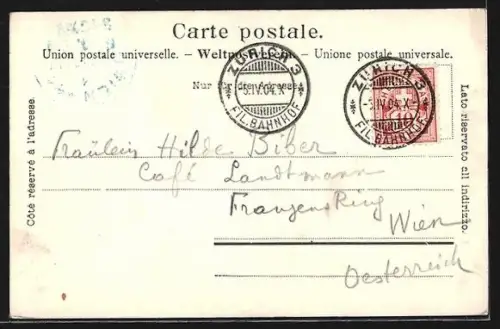 Carte postale.
Union postale universelle. – Weltpostverein. – Unione postale universale.
Nur für die Adresse.
ZÜRICH 3
-5.IV.04.X-
FIL. BAHNHOF
ZÜRICH 3
-5.IV.04.X-
FIL. BAHNHOF
10
Côté réservé à l'adresse.
Lato riservato all indirizzo.
Fräulein Hilde Biber
Café Landtmann
FranzensRing
Wien
Oesterreich